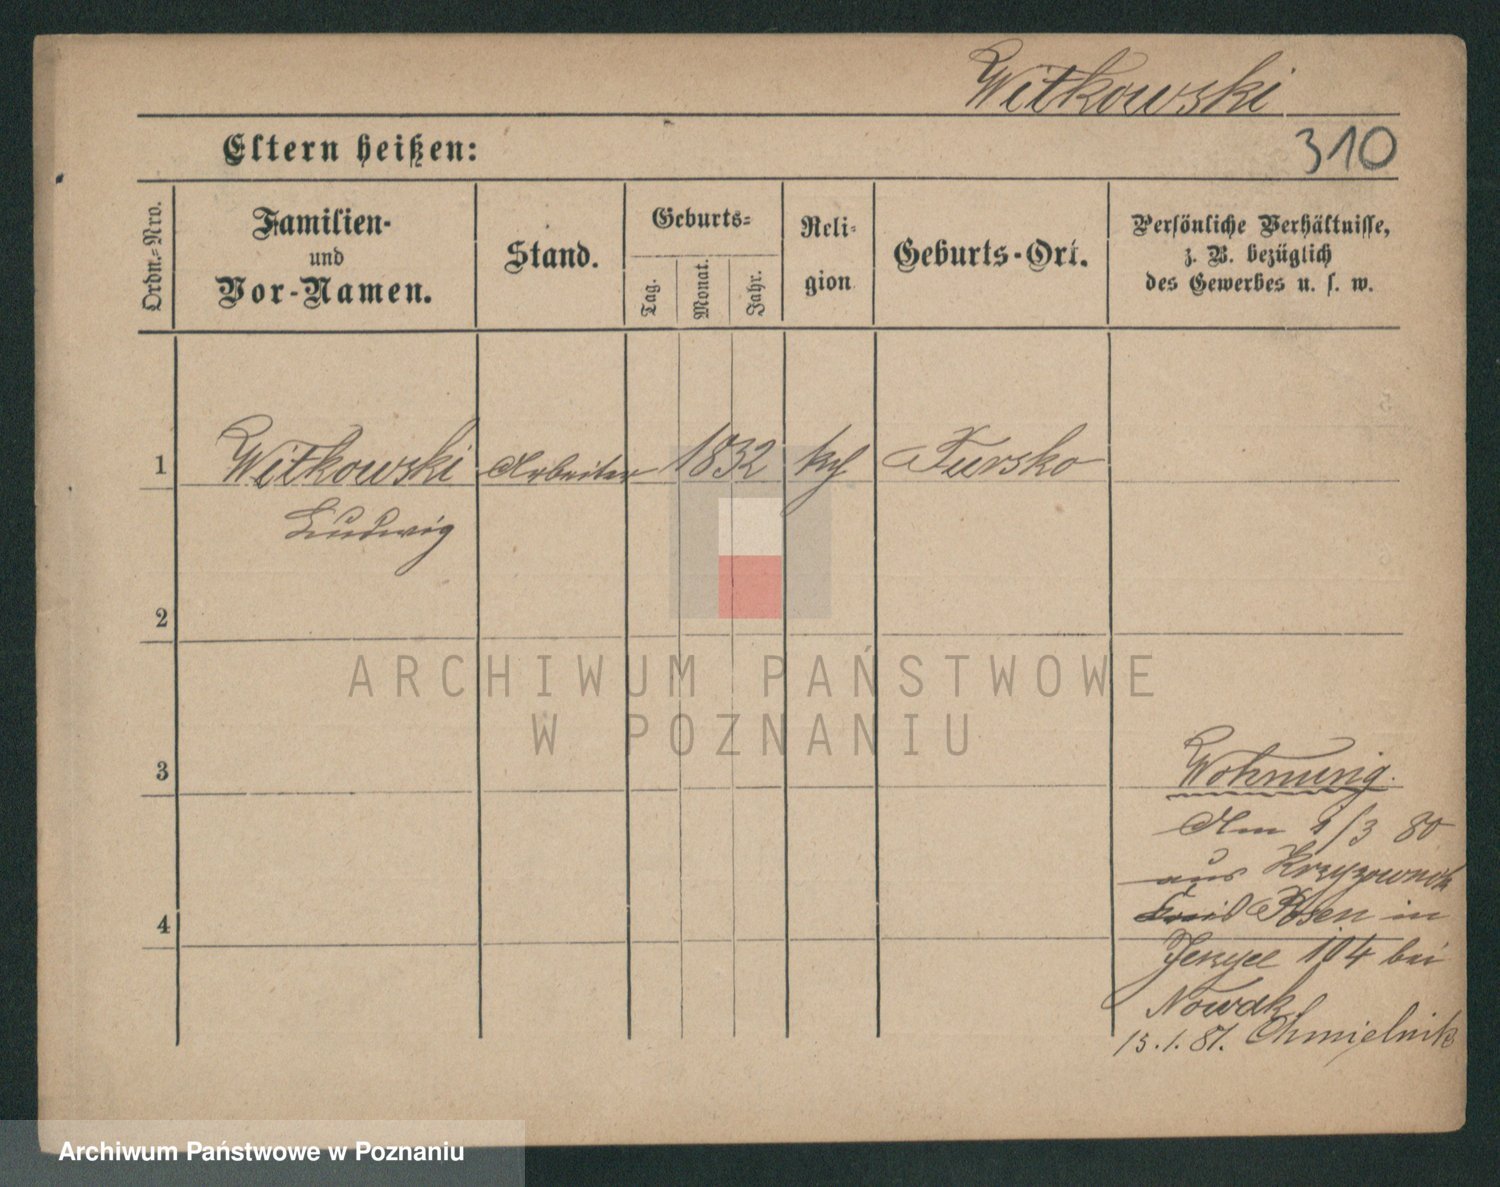 Witkowski
310
Eltern heißen:
Ordn.-Nro.
Familien-
und
Vor-Namen.
Stand.
Geburts-
Tag.
Monat.
Jahr.
Reli-
gion
Geburts-Ort.
Persönliche Verhältnisse,
z. B. bezüglich
des Gewerbes u. s. w.
1 Witkowski Arbeiter 1832 Tursko
Ludwig
2
ARCHIWUM PAŃSTWOWE
W POZNANIU
3
Wohnung.
Am 1/3 80
aus Krzyzownik
Posen in
Jerzyce 104 bei
4
Nowak.
15.1.81. Chmielnik
Archiwum Państwowe w Poznaniu